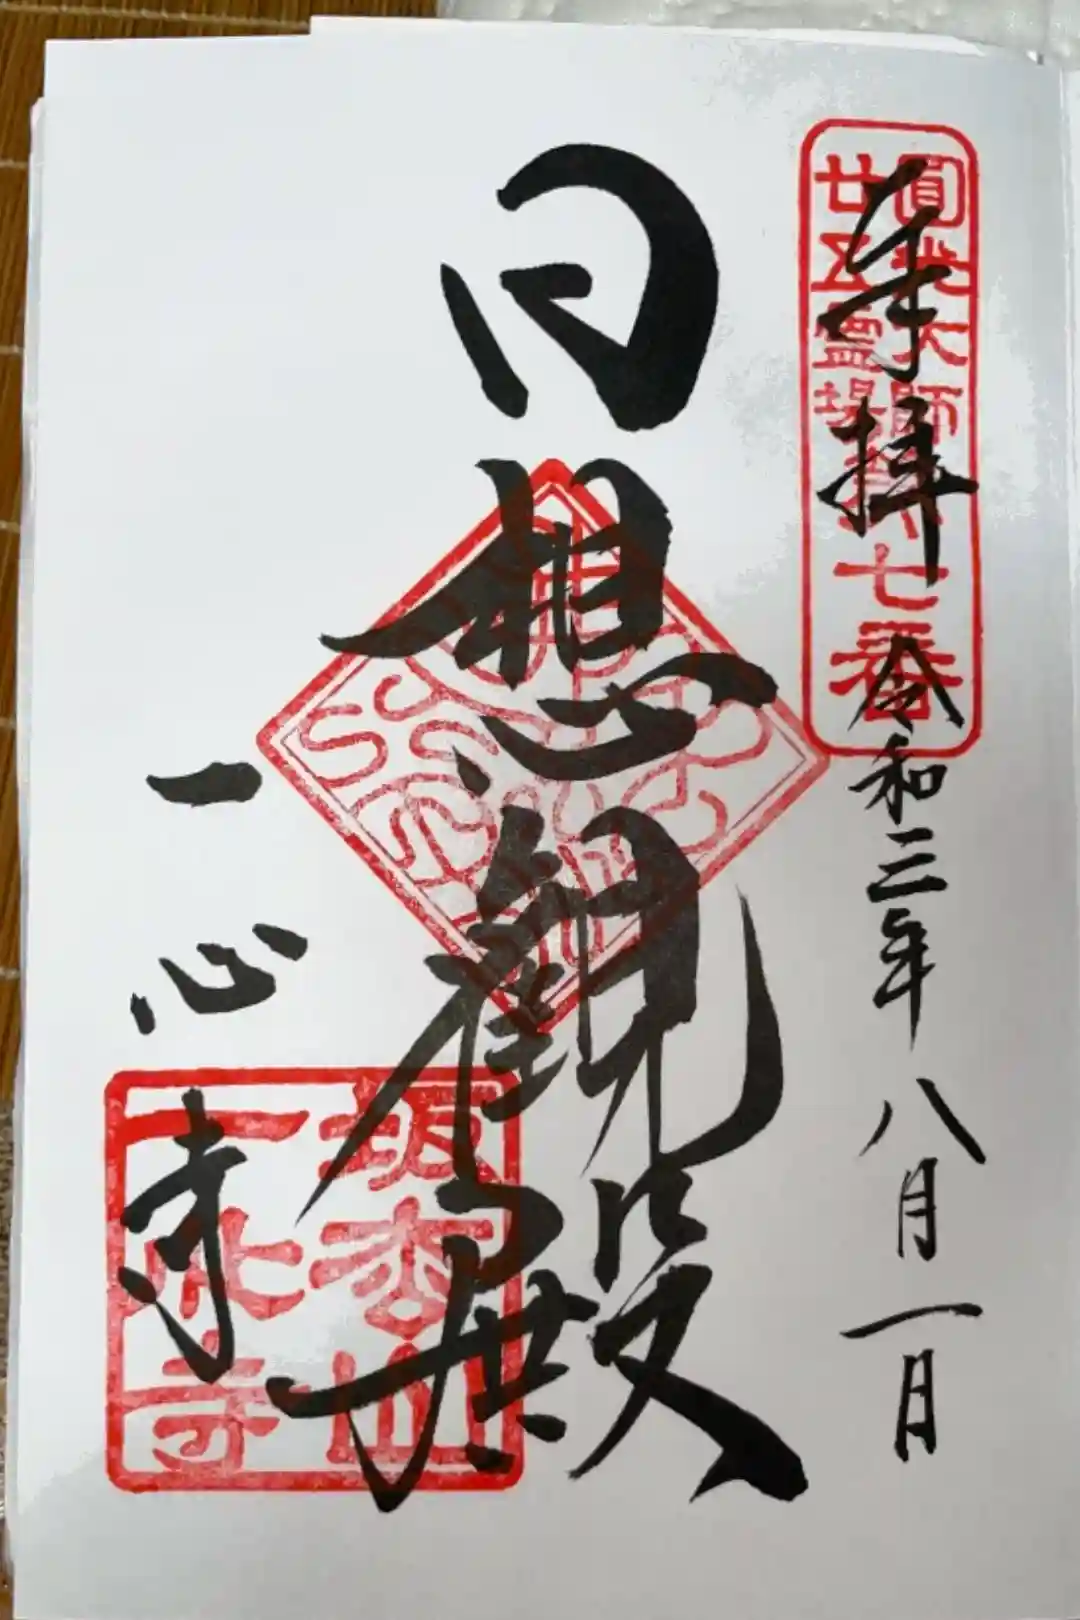 奉拝
令和三年八月一日
圓光大師
廿五霊場第七番
日想觀殿
一心寺
坂松山
一心寺